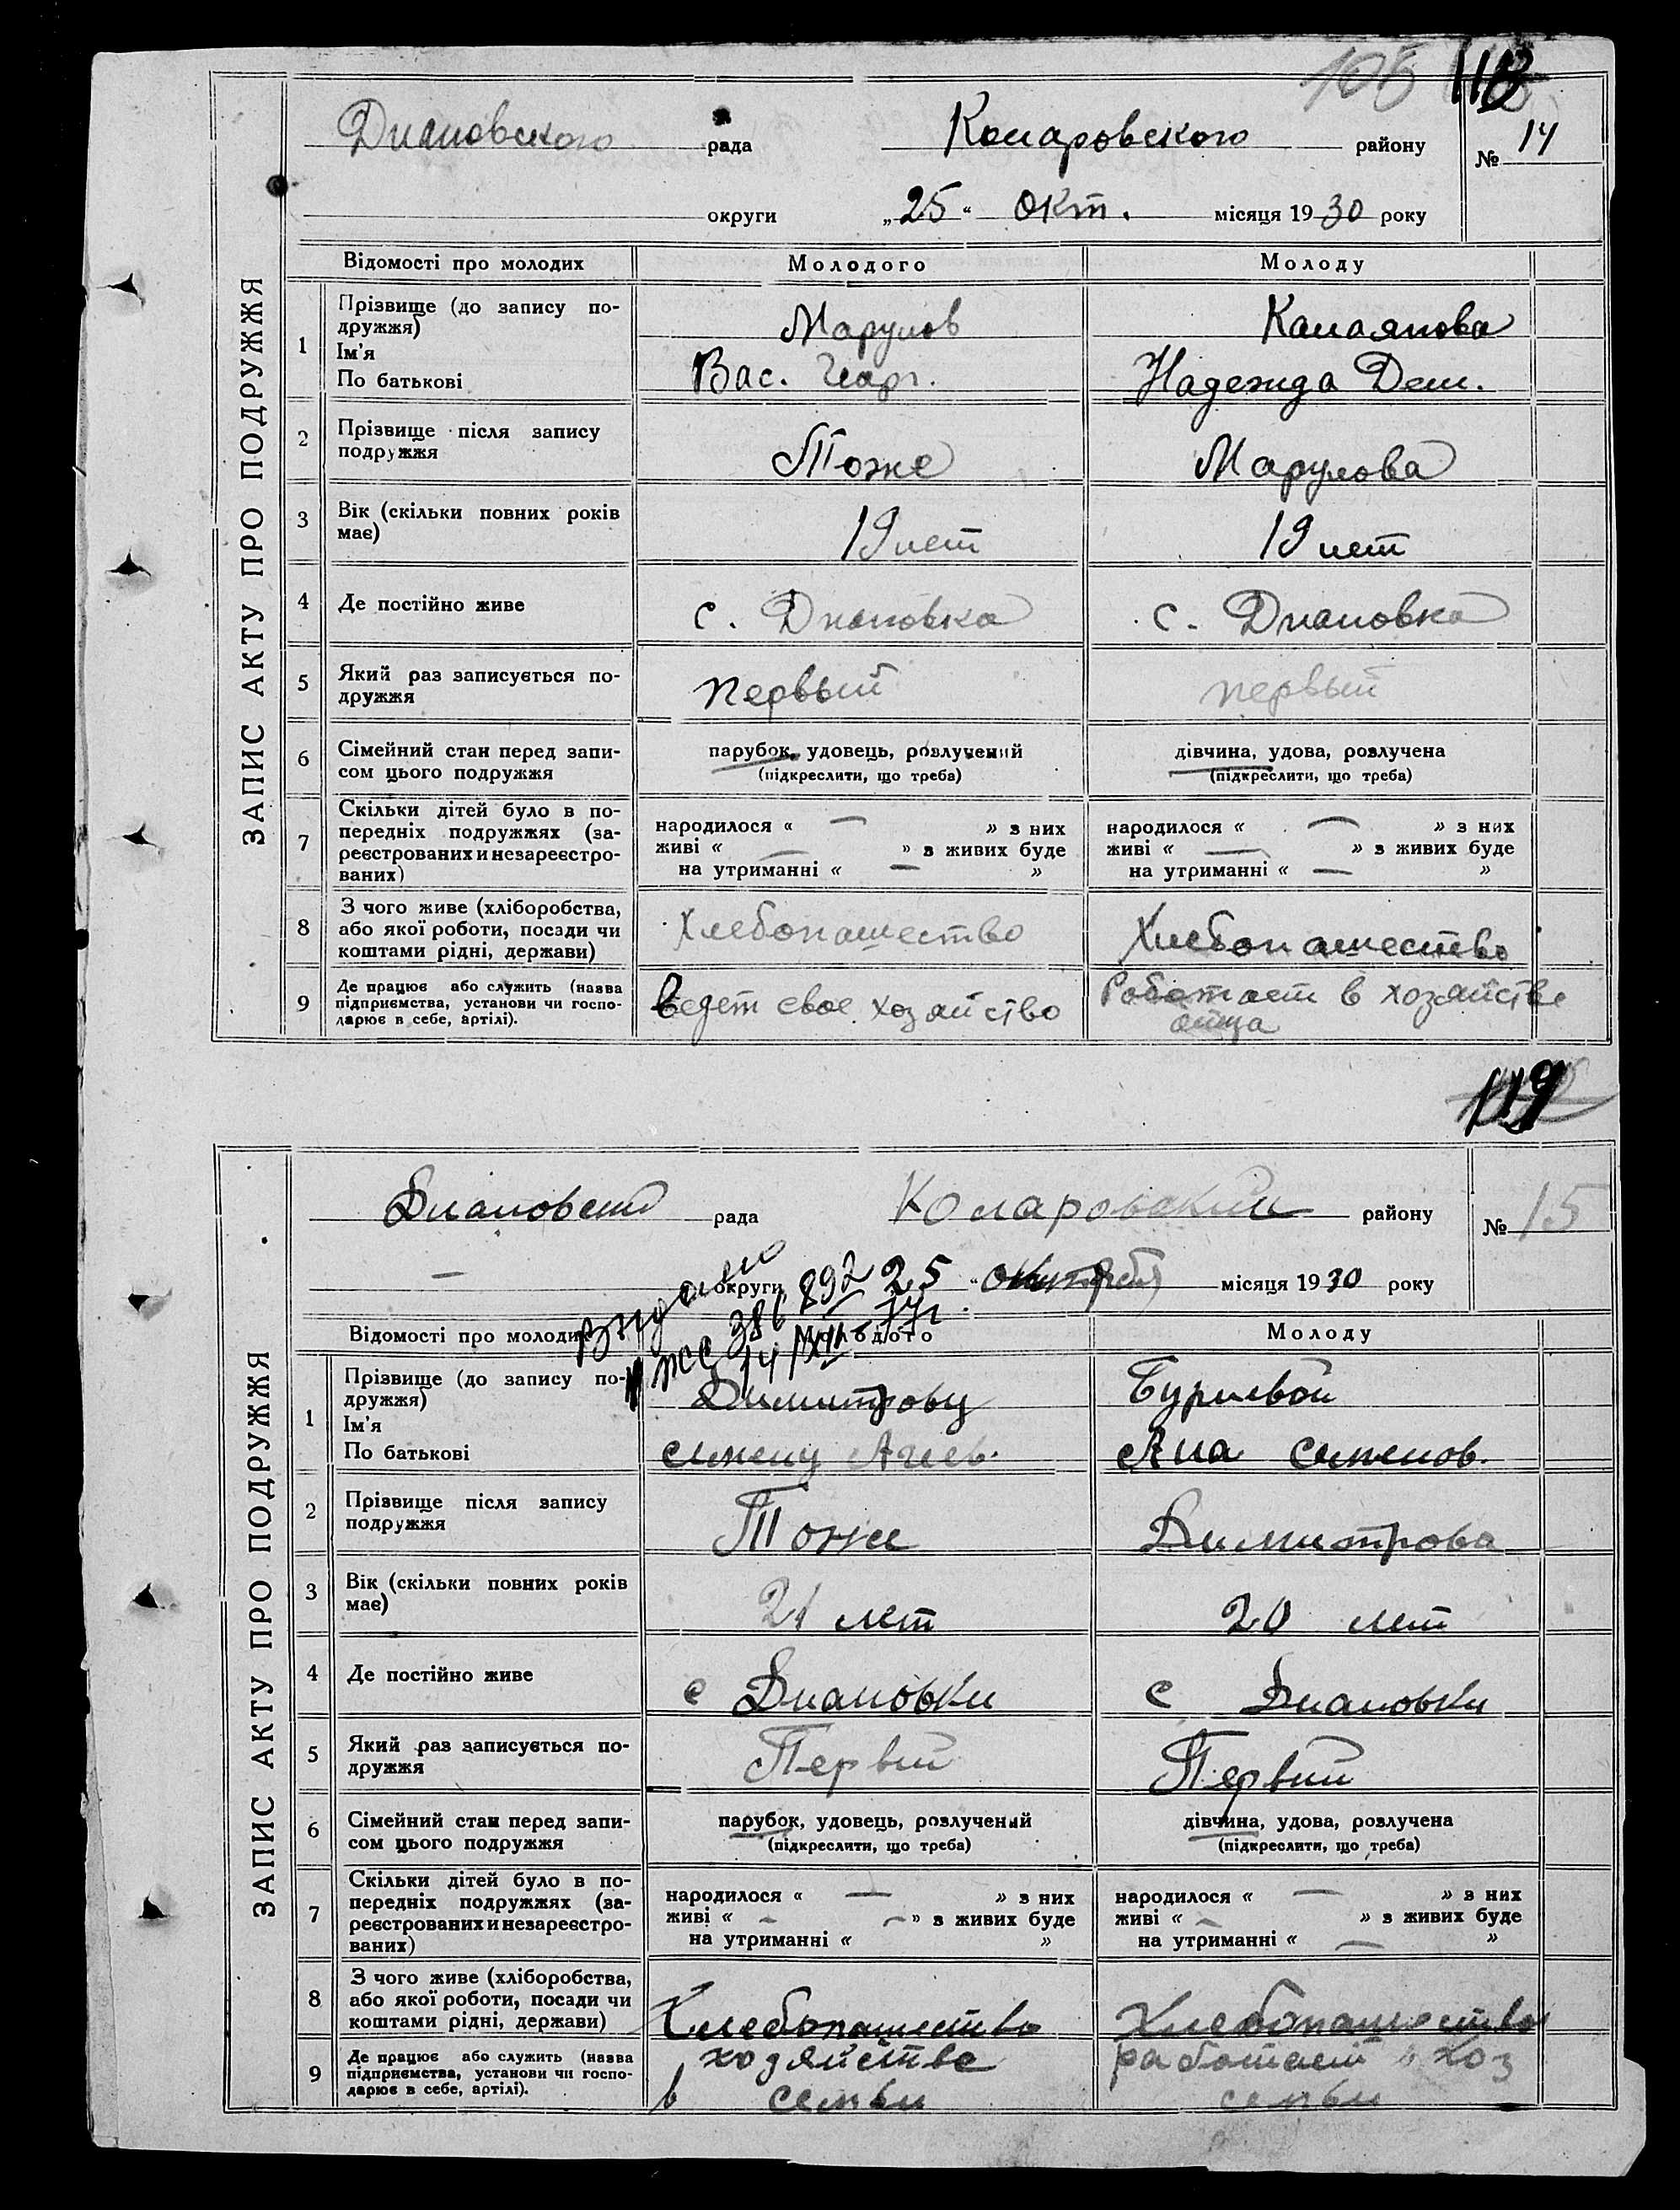 108 118
Диановского рада Комаровского району № 14
округи „25“ окт. місяця 1930 року
ЗАПИС АКТУ ПРО ПОДРУЖЖЯ
Відомості про молодих Молодого Молоду
1 Прізвище (до запису по-
дружжя) Марулов
Ім'я
По батькові Вас. Геарг. Надежда Дем.
2 Прізвище після запису
подружжя Тоже Марулова
3 Вік (скільки повних років
має) 19 лет 19 лет
4 Де постійно живе с. Диановка с. Диановка
5 Який раз записується по-
дружжя первый первый
6 Сімейний стан перед запи-
сом цього подружжя
парубок, удовець, розлучений
(підкреслити, що треба)
дівчина, удова, розлучена
(підкреслити, що треба)
7 Скільки дітей було в по-
передніх подружжях (за-
реєстрованих и незареєстро-
ваних)
народилося « — » з них
живі « — » з живих буде
на утриманні « — »
народилося « — » з них
живі « — » з живих буде
на утриманні « — »
8 З чого живе (хліборобства,
або якої роботи, посади чи
коштами рідні, держави)
Хлебопашество Хлебопашество
9 Де працює або служить (назва
підприємства, установи чи госпо-
дарює в себе, артілі).
Ведет свое хозяйство
Работает в хозяйстве
отца
119
Диановский рада Комаровский району № 15
— округи 25 “ октября місяця 1930 року
Видано
386 892
14/XII
ЗАПИС АКТУ ПРО ПОДРУЖЖЯ
Відомості про молодих Молодого Молоду
1 Прізвище (до запису по-
дружжя) Димитрову
Ім'я
По батькові Семену Ана Семенов.
2 Прізвище після запису
подружжя Тоже Димитрова
3 Вік (скільки повних років
має) 21 лет 20 лет
4 Де постійно живе с Диановки с Диановки
5 Який раз записується по-
дружжя Первий Первий
6 Сімейний стан перед запи-
сом цього подружжя
парубок, удовець, розлучений
(підкреслити, що треба)
дівчина, удова, розлучена
(підкреслити, що треба)
7 Скільки дітей було в по-
передніх подружжях (за-
реєстрованих и незареєстро-
ваних)
народилося « — » з них
живі « — — » з живих буде
на утриманні « »
народилося « — » з них
живі « — » з живих буде
на утриманні « — »
8 З чого живе (хліборобства,
або якої роботи, посади чи
коштами рідні, держави)
Хлебопашество Хлебопашество
9 Де працює або служить (назва
підприємства, установи чи госпо-
дарює в себе, артілі).
хозяйстве
в семьи
работает в хоз
семьи